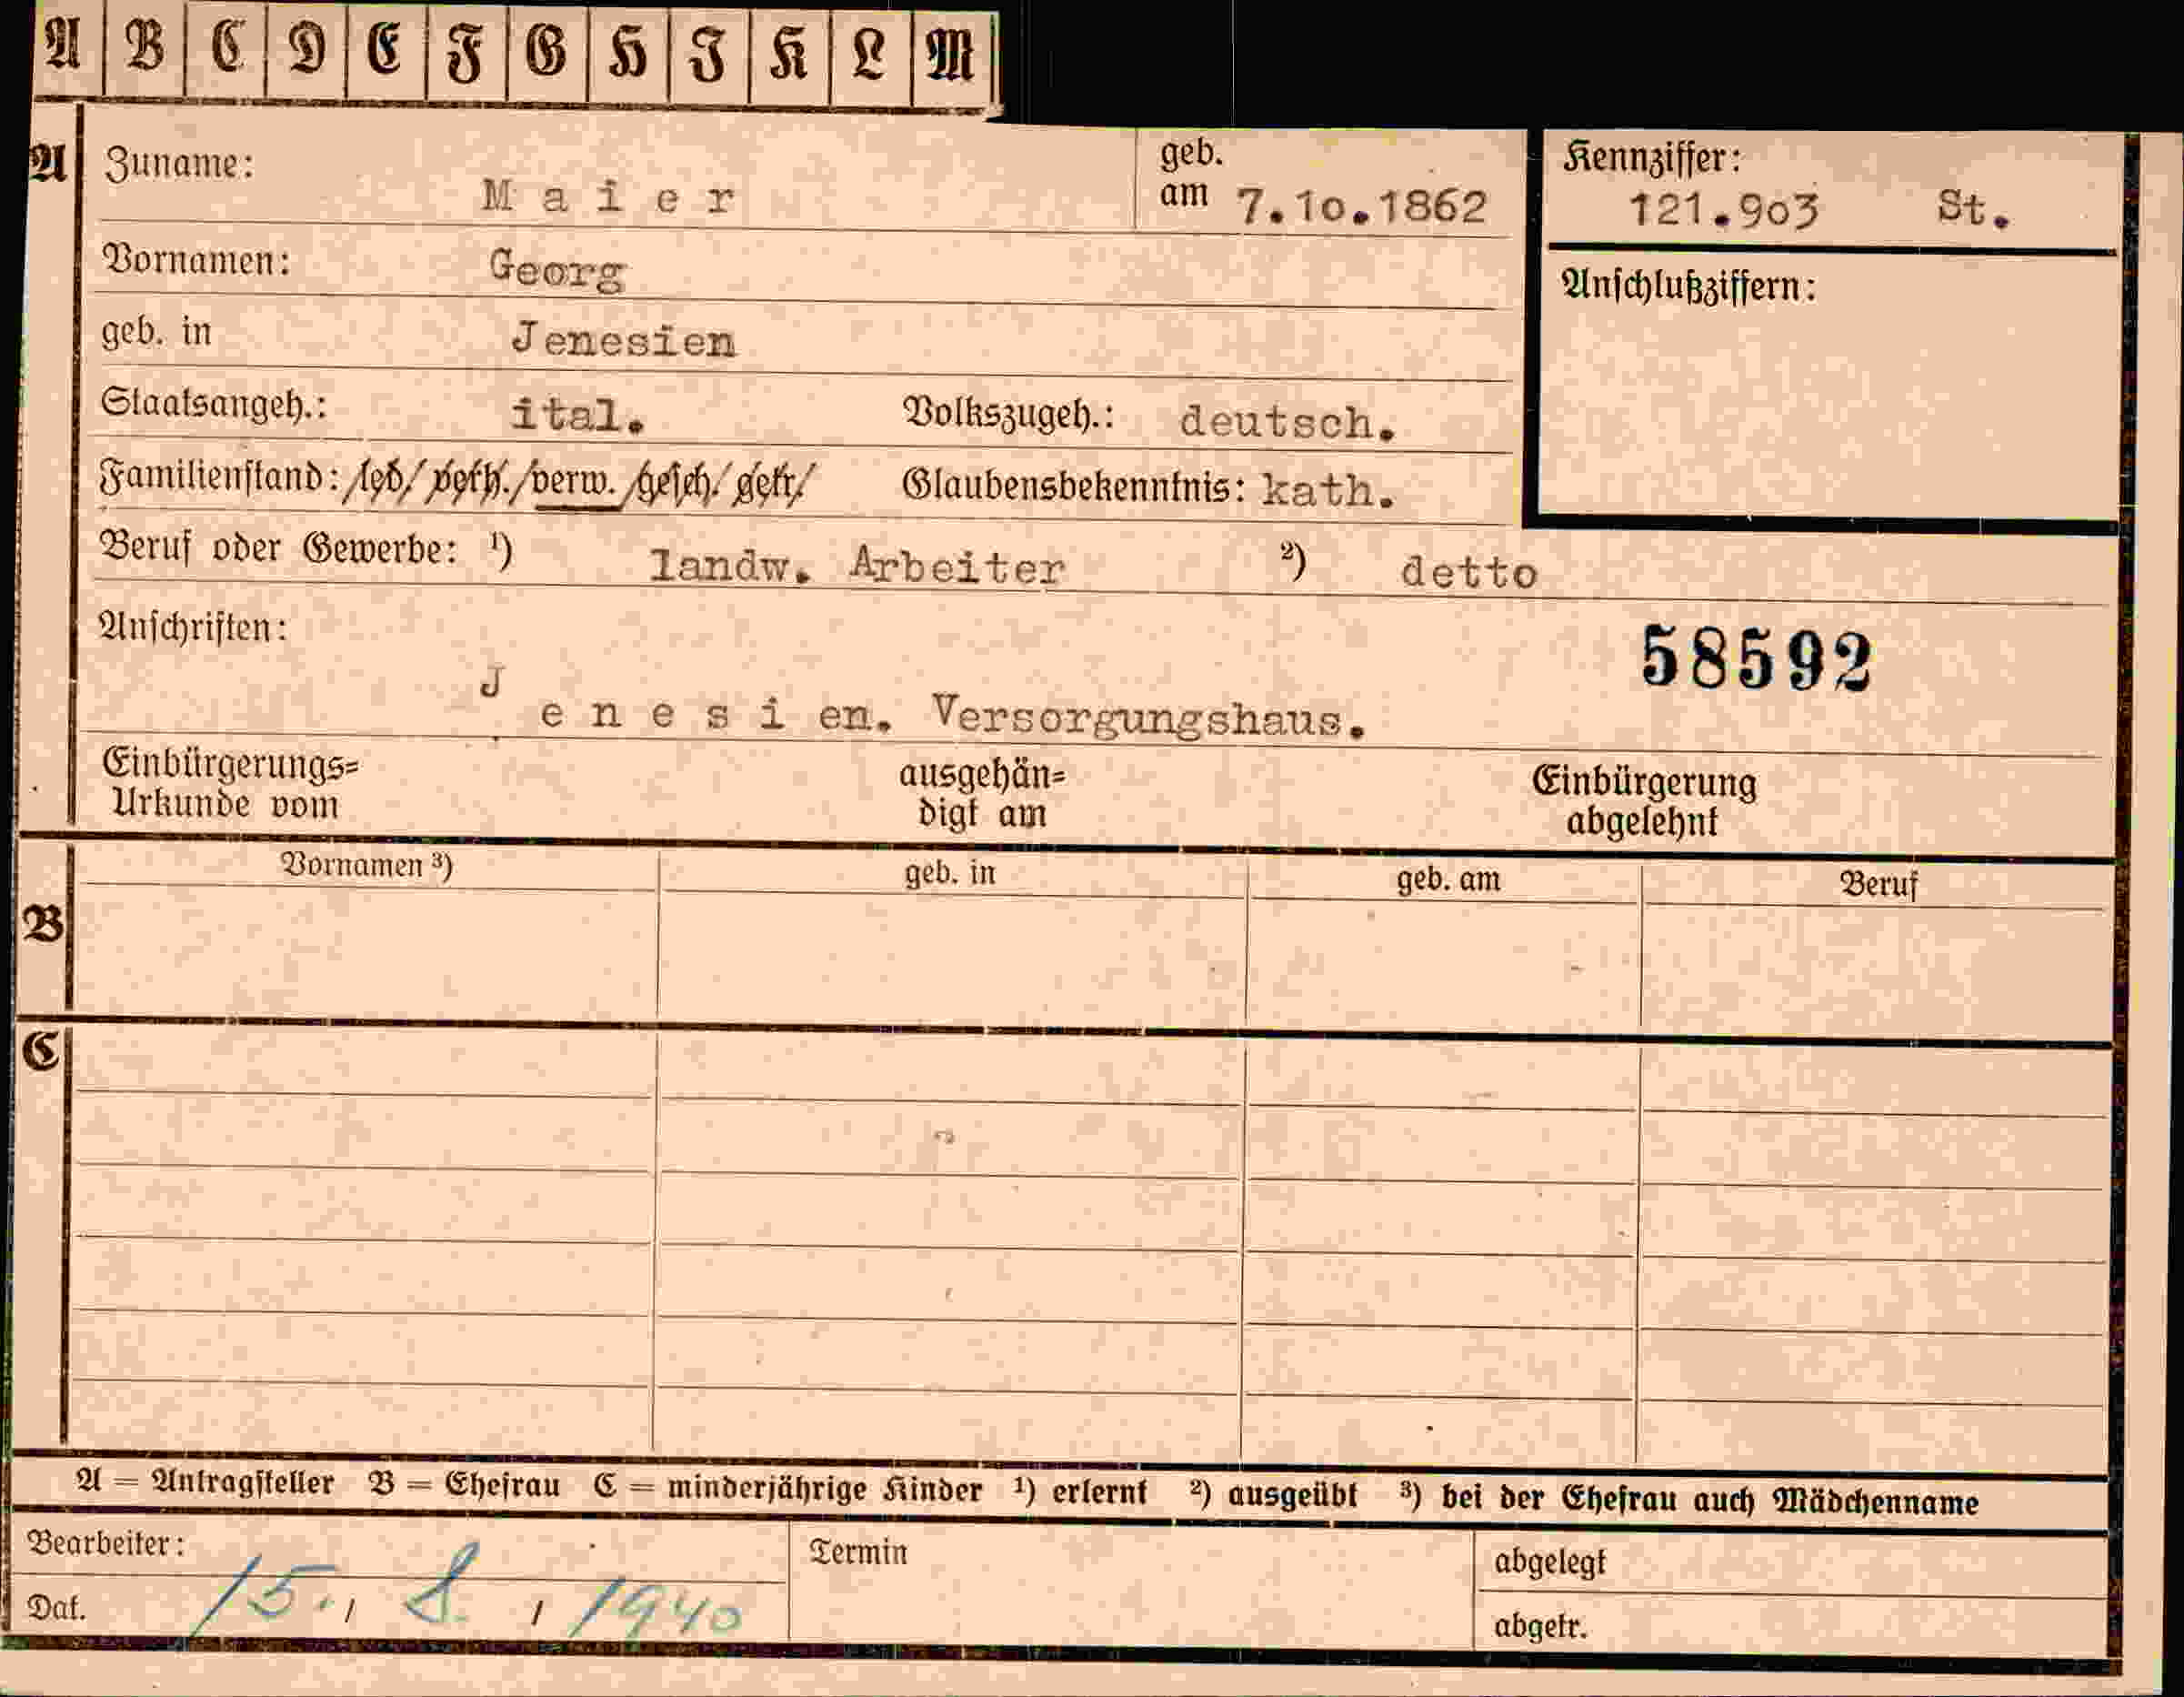 A B C D E F G H I K L M
A Zuname: Maier geb. am 7.10.1862 Kennziffer: 121.903 St.
Vornamen: Georg Anschlußziffern:
geb. in Jenesien
Staatsangeh.: ital. Volkszugeh.: deutsch.
Familienstand: led/ verh./verw./gesch/ getr/ Glaubensbekenntnis: kath.
Beruf oder Gewerbe: ¹) landw. Arbeiter ²) detto
Anschriften: 58592
Jenesien. Versorgungshaus.
Einbürgerungs= ausgehän= Einbürgerung
Urkunde vom digt am abgelehnt
Vornamen ³) geb. in geb. am Beruf
B
C
A = Antragsteller B = Ehefrau C = minderjährige Kinder ¹) erlernt ²) ausgeübt ³) bei der Ehefrau auch Mädchenname
Bearbeiter: Termin abgelegt
Dat. 15., 8. , 1940 abgetr.